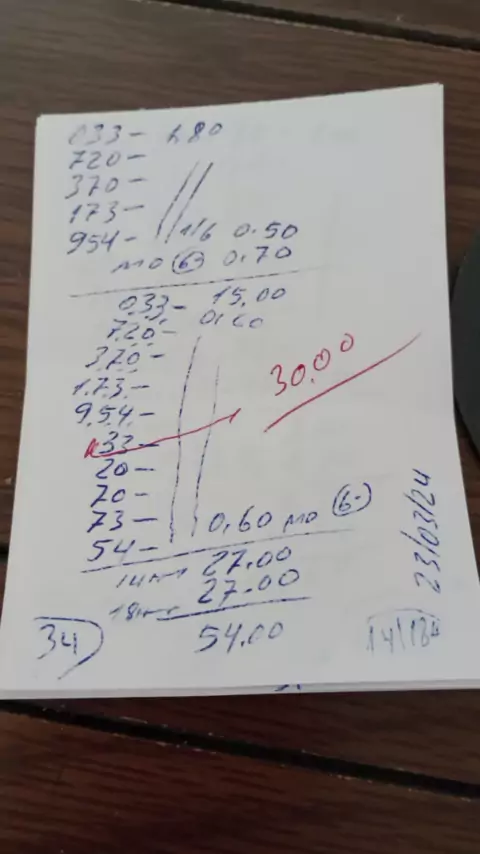 033- 1.80
720-
370-
173-
954- 1/6 0.50
MO (6-) 0.70
033- 15.00
720- 0.60
370-
173-
954-
30.00
33-
20-
70-
73- 0,60 MO (6-)
54-
27.00
27.00
54.00
34
23/03/24